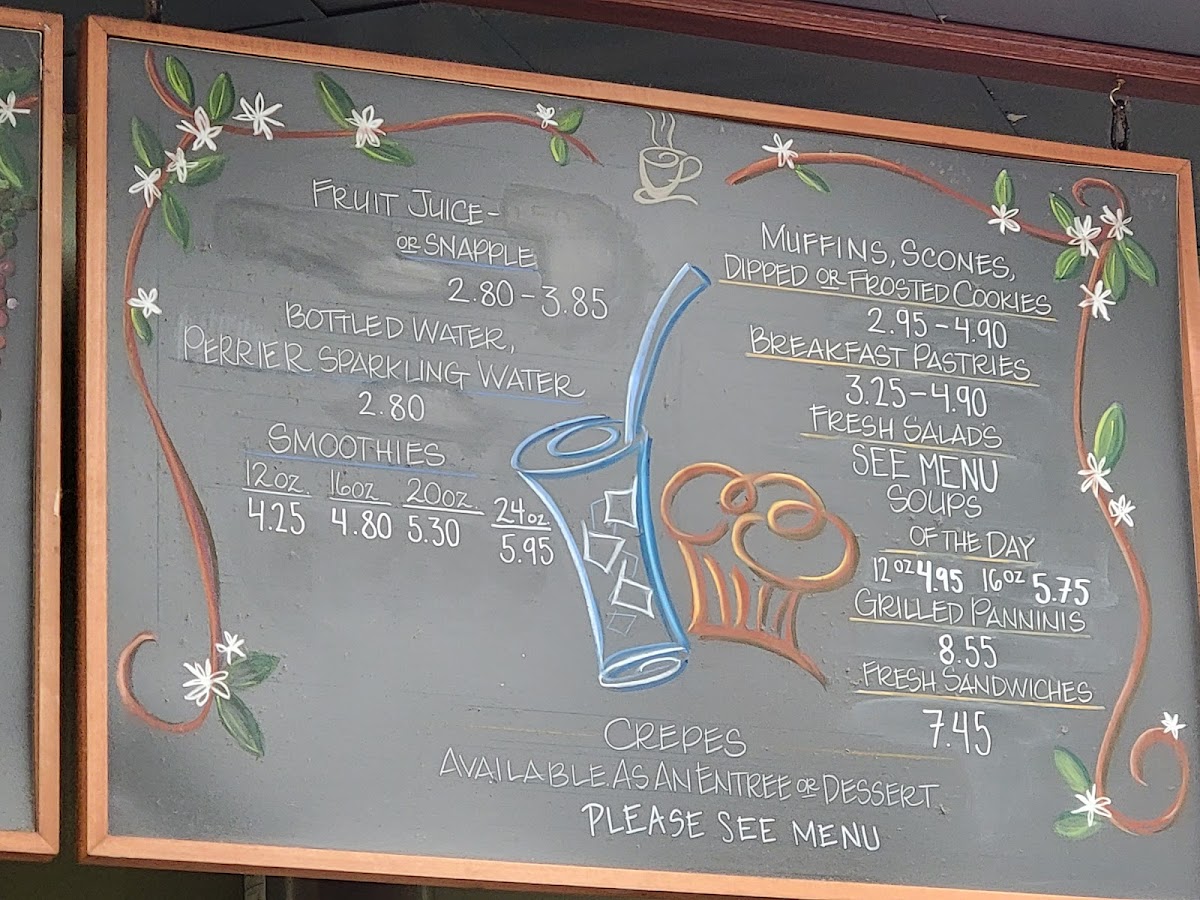 FRUIT JUICE-
OR SNAPPLE
2.80-3.85
BOTTLED WATER,
PERRIER SPARKLING WATER
2.80
SMOOTHIES
12oz. 16oz 20oz 24oz
4.25 4.80 5.30 5.95
MUFFINS, SCONES,
DIPPED OR FROSTED COOKIES
2.95-4.90
BREAKFAST PASTRIES
3.25-4.90
FRESH SALADS
SEE MENU
SOUPS
OF THE DAY
12oz 4.95 16oz 5.75
GRILLED PANNINIS
8.55
FRESH SANDWICHES
7.45
CREPES
AVAILABLE AS AN ENTREE OR DESSERT
PLEASE SEE MENU